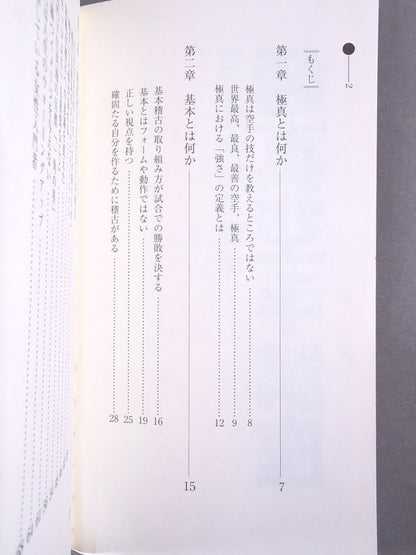 2
もくじ
第一章 極真とは何か 7
極真は空手の技だけを教えるところではない 8
世界最高、最良、最善の空手、極真 9
極真における「強さ」の定義とは 12
第二章 基本とは何か 15
基本稽古の取り組み方が試合での勝敗を決する 16
基本とはフォームや動作ではない 19
正しい視点を持つ 25
確固たる自分を作るために稽古がある 28